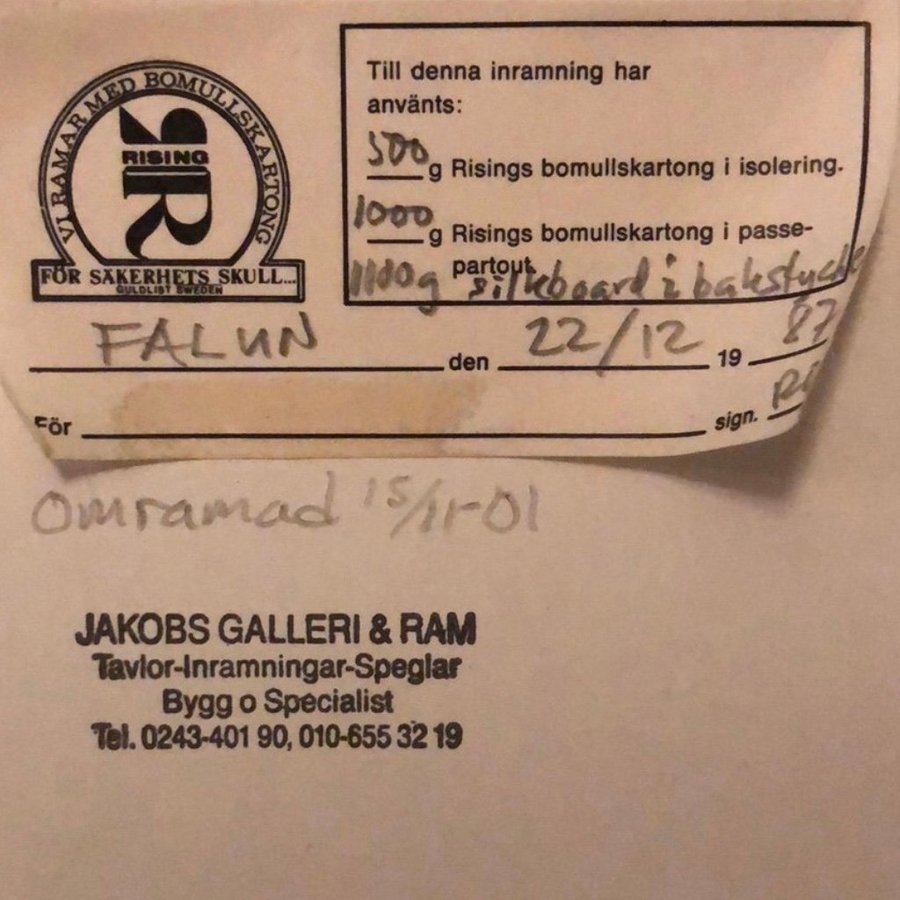 VI RAMAR MED BOMULLSKARTONG
RISING
R
FÖR SÄKERHETS SKULL...
GULDLIST SWEDEN
Till denna inramning har
använts:
500 g Risings bomullskartong i isolering.
1000 g Risings bomullskartong i passe-
partout.
1100g silkboard i bakstycke
FALUN den 22/12 19 87
För sign.
Omramad 15/11-01
JAKOBS GALLERI & RAM
Tavlor-Inramningar-Speglar
Bygg o Specialist
Tel. 0243-401 90, 010-655 32 19